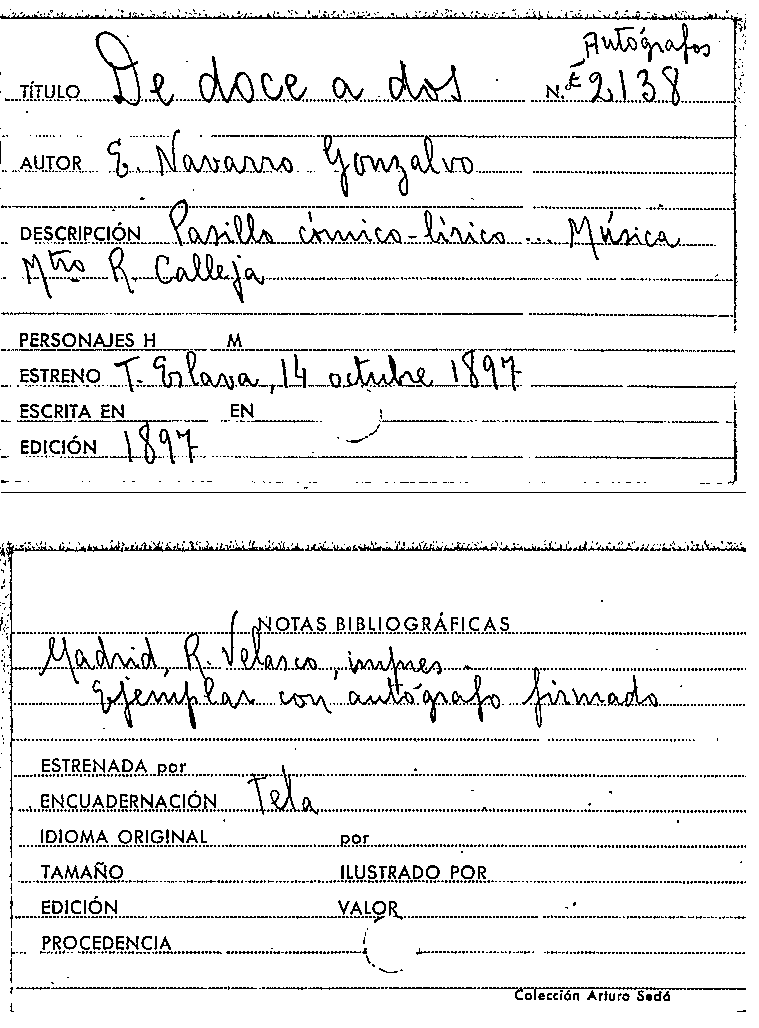 Autógrafos
TÍTULO De doce a dos N.º E 2138
AUTOR E. Navarro Gonzalvo
DESCRIPCIÓN Pasillo cómico-lírico ... Música
Mtro R. Calleja
PERSONAJES H M
ESTRENO T. Eslava, 14 octubre 1897
ESCRITA EN EN
EDICIÓN 1897
NOTAS BIBLIOGRÁFICAS
Madrid, R. Velasco, impres.
Ejemplar con autógrafo firmado
ESTRENADA por
ENCUADERNACIÓN Tela
IDIOMA ORIGINAL por
TAMAÑO ILUSTRADO POR
EDICIÓN VALOR
PROCEDENCIA
Colección Arturo Sedó